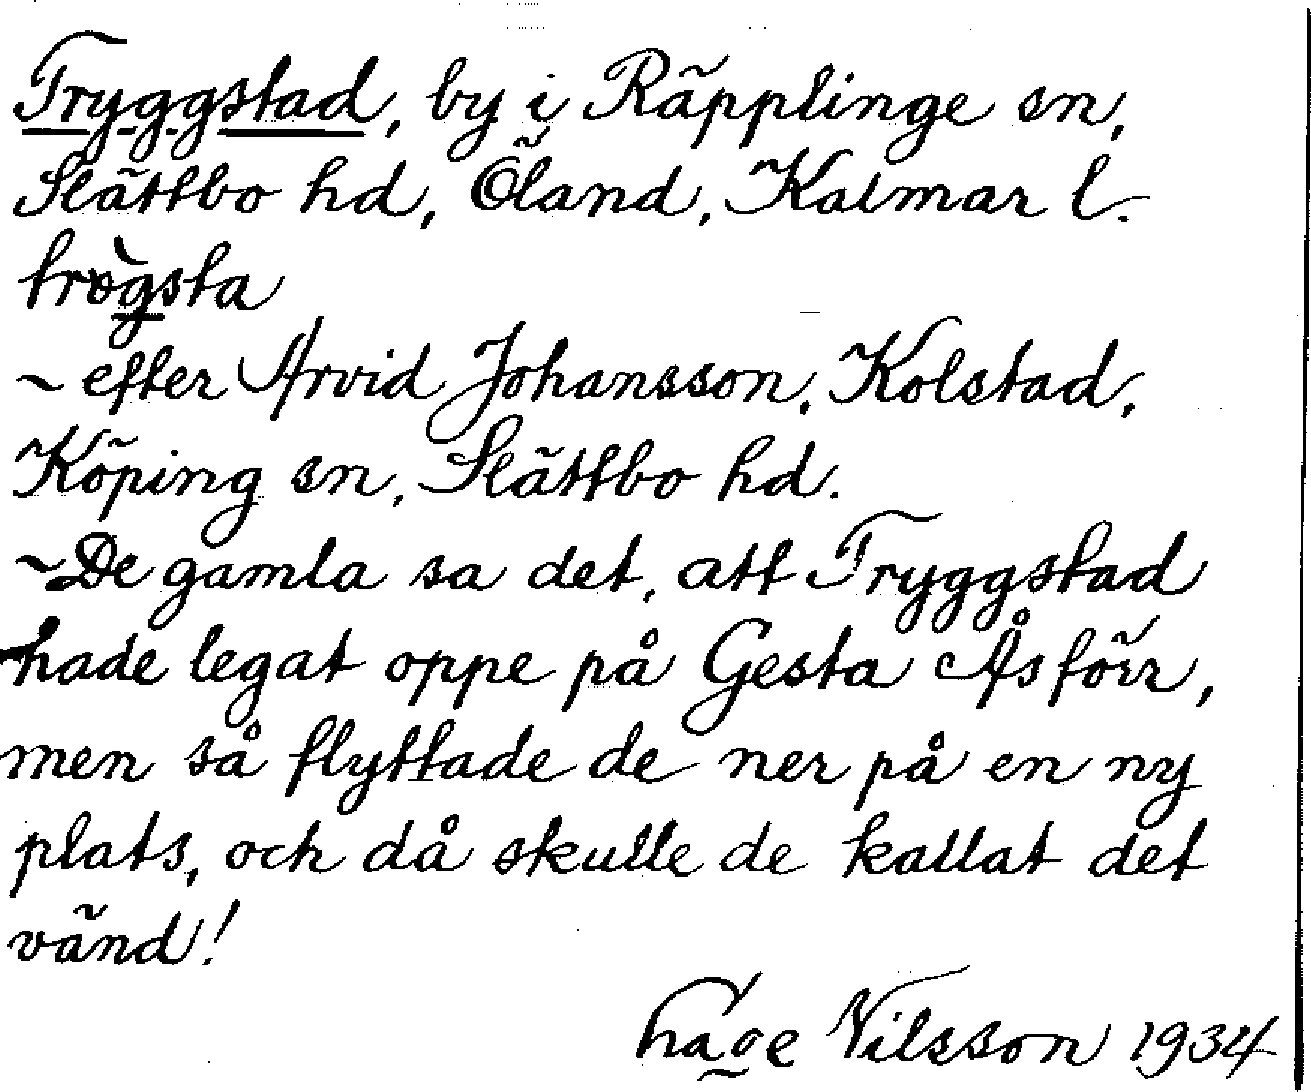 Tryggstad, by i Räpplinge sn,
Slättbo hd, Öland, Kalmar l.
trògsta
~ efter Arvid Johansson, Kolstad,
Köping sn, Slättbo hd.
~ De gamla sa det, att Tryggstad
hade legat oppe på Gesta Ås förr,
men så flyttade de ner på en ny
plats, och då skulle de kallat det
vänd!
Nilsson 1934